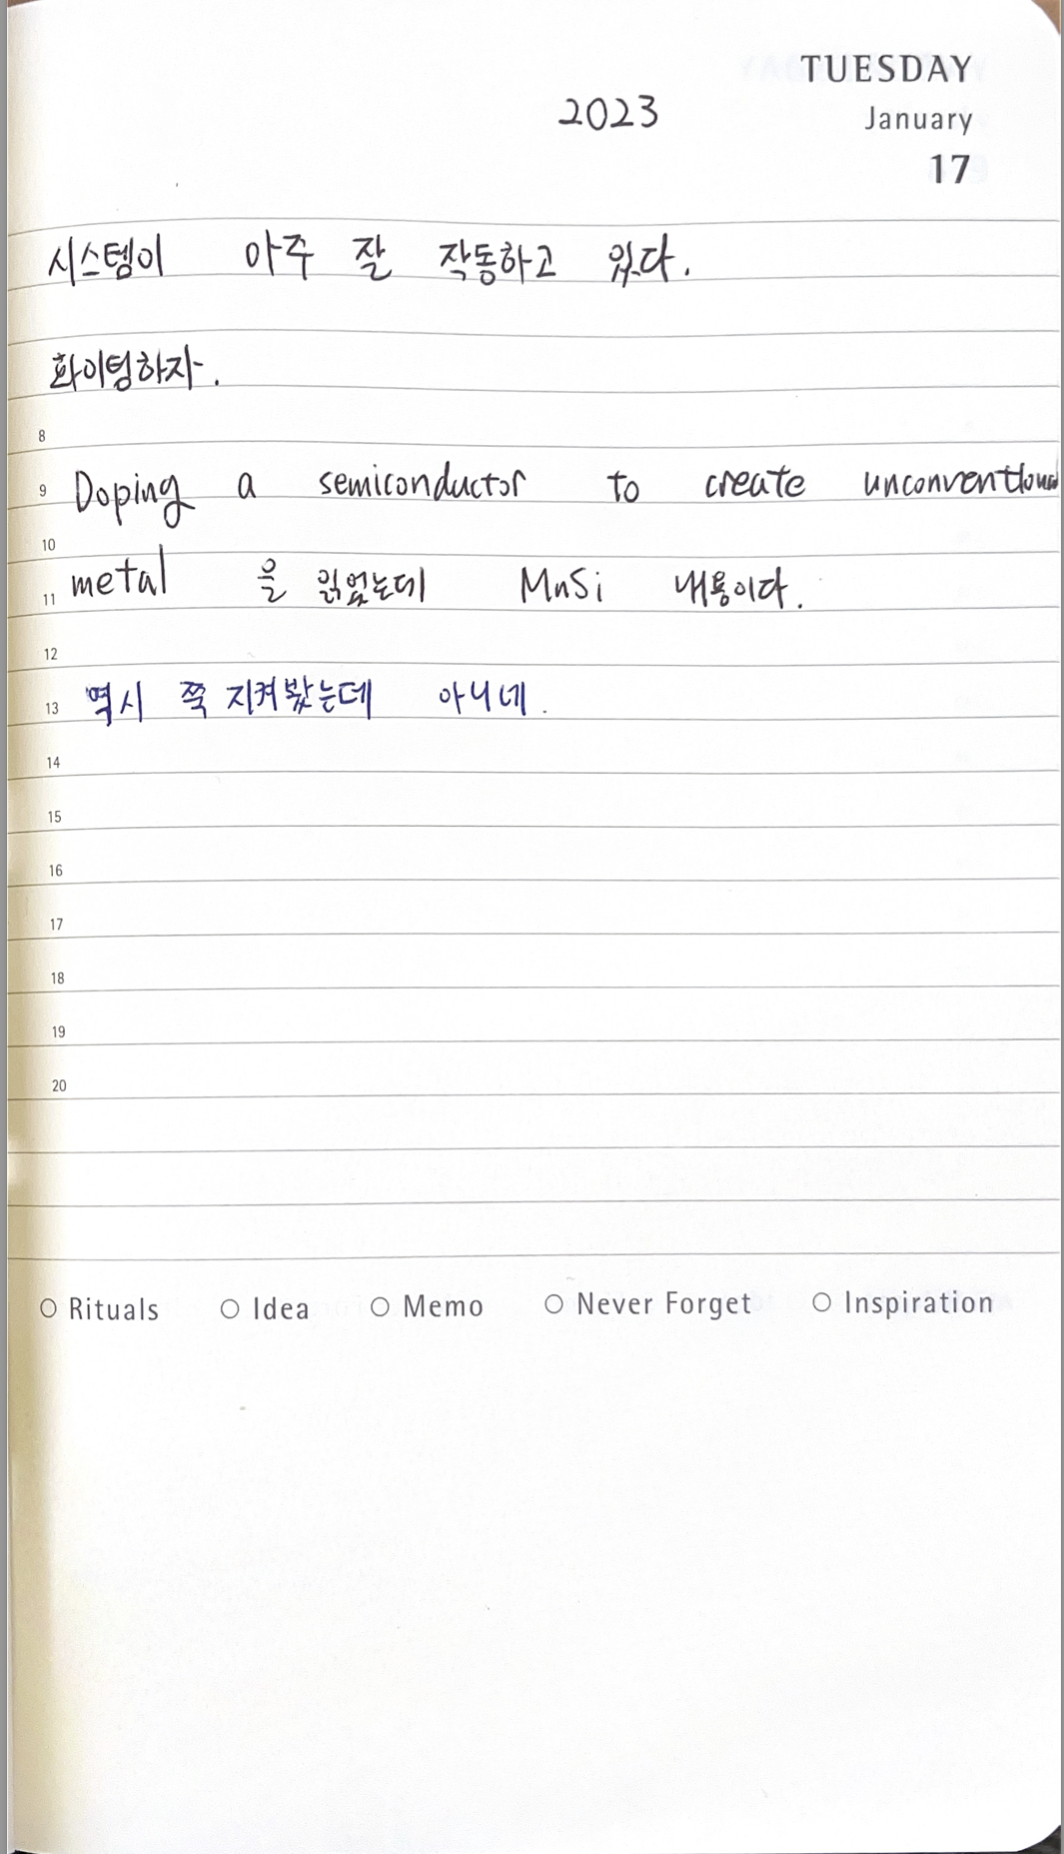 TUESDAY
2023 January
17
시스템이 아주 잘 작동하고 있다.
화이팅하자.
8
9 Doping a semiconductor to create unconventional
10
11 metal 을 읽었는데 MnSi 내용이다.
12
13 역시 쭉 지켜봤는데 아니네.
14
15
16
17
18
19
20
Rituals Idea Memo Never Forget Inspiration